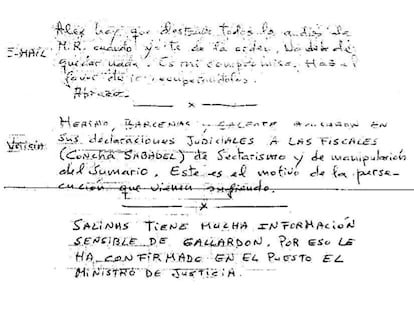 Alex hay que destruir todos los audios de
E-MAIL M.R. cuando yo te de la orden. No debe de
quedar nada. Es mi compromiso. Haz el
favor de ir recuperándolos.
Abrazo.
x
MERINO, BARCENAS, y GALEOTE acusaron en
Versión sus declaraciones JUDICIALES A LAS FISCALES
(CONCHA SABADEL) de Sectarismo y de manipulación
del Sumario. Este es el motivo de la perse-
cución que vienen sufriendo.
x
SALINAS TIENE MUCHA INFORMACIÓN
SENSIBLE DE GALLARDON. POR ESO LE
HA CONFIRMADO EN EL PUESTO EL
MINISTRO DE JUSTICIA.